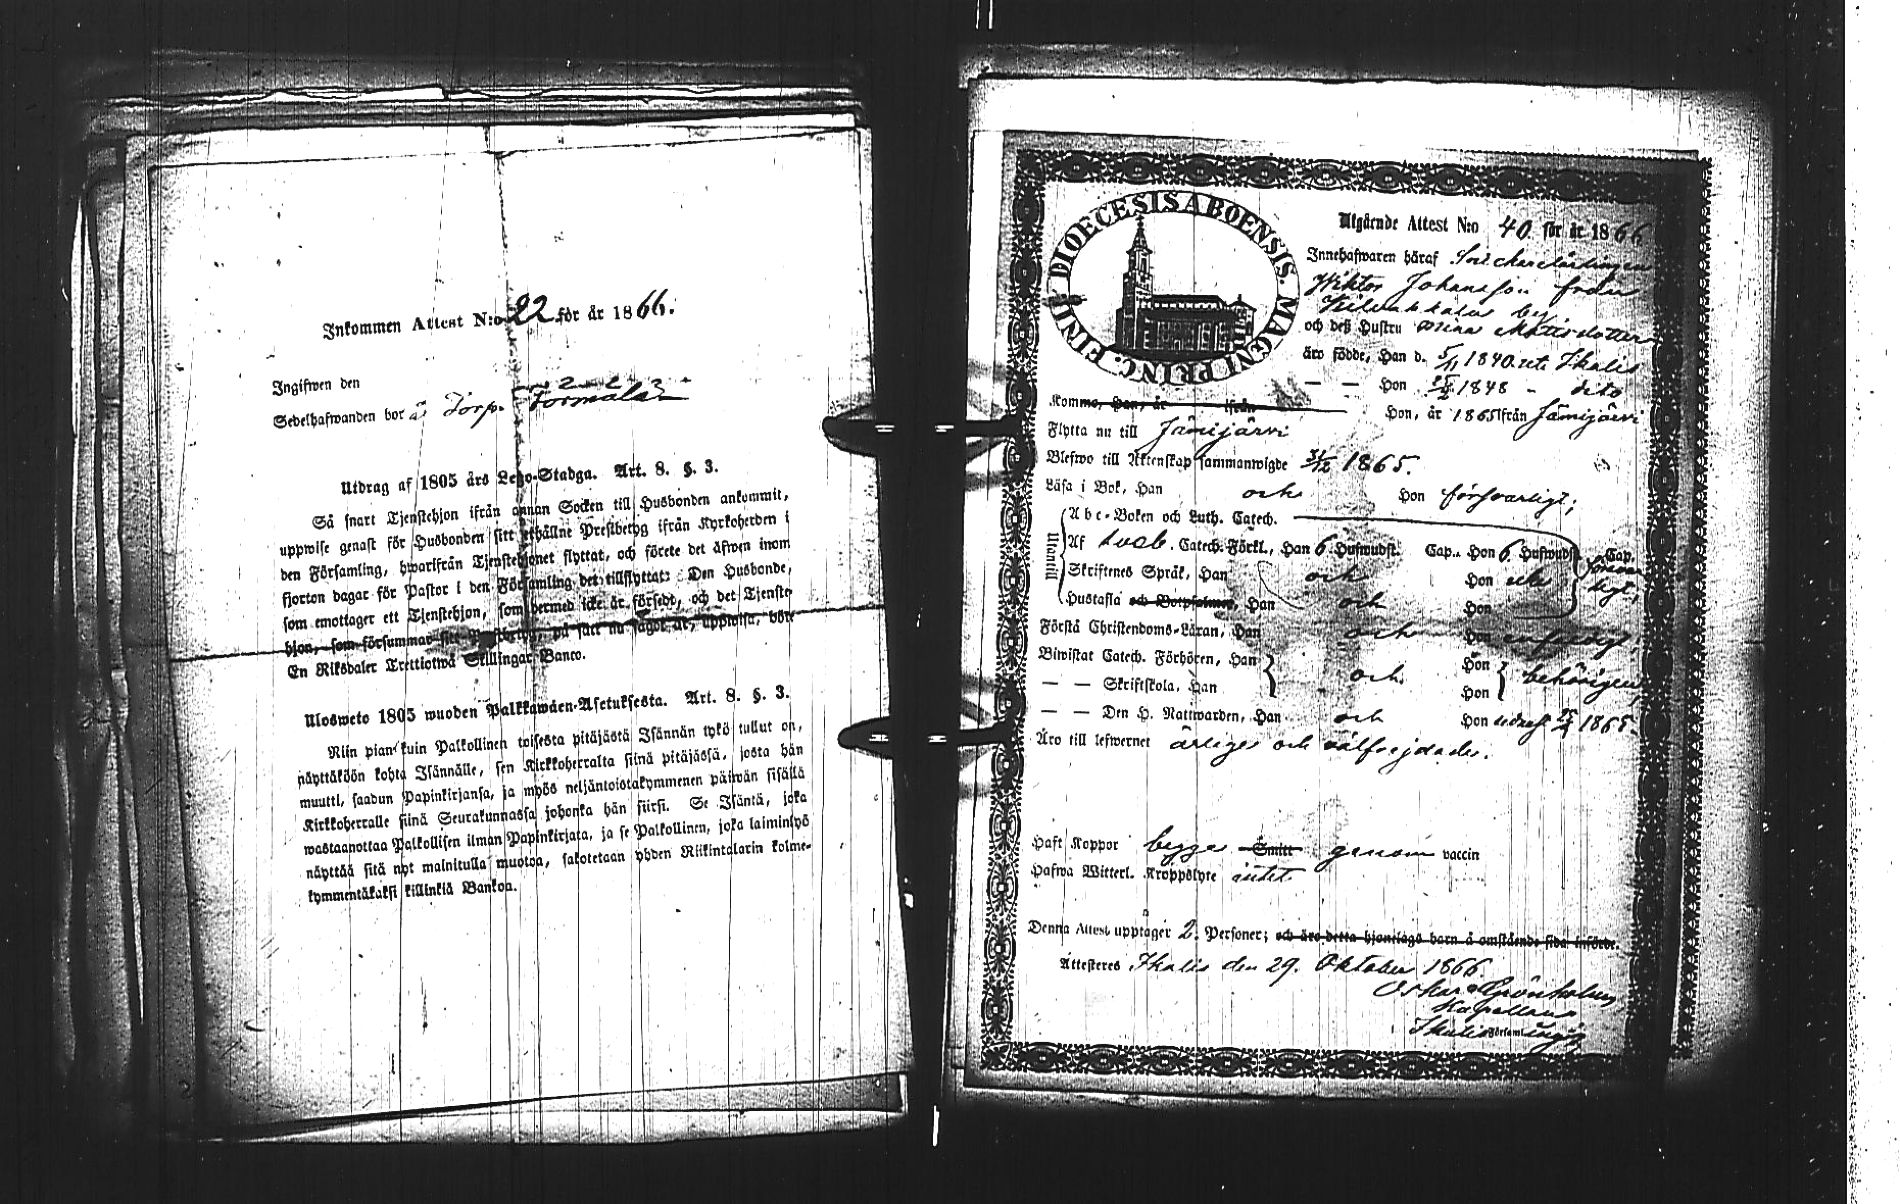 Inkommen Attest N:o 22 för år 1866.
Ingifwen den
Sedelhafwanden bor å Torp. Formala
Utdrag af 1805 års Lego-Stadga. Art. 8. §. 3.
Så snart Tjenstehjon ifrån annan Socken till Husbonden ankommit,
uppwise genast för Husbonden sitt erhållne Prestbetyg ifrån Kyrkoherden i
den Församling, hwarifrån Tjenstehjonet flyttat, och förete det äfwen inom
fjorton dagar för Pastor i den Församling det tillflyttat: Den Husbonde,
som emottager ett Tjenstehjon, som dermed icke är försedt, och det Tjenste-
hjon, som försummar sitt Prestbetyg, på sätt nu sagdt är, uppwisa, böte
En Riksdaler Trettiotwå Skillingar Banco.
Ulosweto 1805 wuoden Palkkawäen-Asetuksesta. Art. 8. §. 3.
Niin pian kuin Palkollinen toisesta pitäjästä Isännän tykö tullut on,
näyttäköön kohta Isännälle, sen Kirkkoherralta siinä pitäjässä, josta hän
muutti, saadun Papinkirjansa, ja myös neljäntoistakymmenen päiwän sisällä
Kirkkoherralle siinä Seurakunnassa johonka hän siirsi. Se Isäntä, joka
wastaanottaa Palkollisen ilman Papinkirjata, ja se Palkollinen, joka laiminlyö
näyttää sitä nyt mainitulla muotoa, sakotetaan yhden Riikintalarin kolme-
kymmentäkaksi killinkiä Bankoa.
DIOECESIS ABOENSIS. MAGNI PRINC. FINL.
Utgående Attest N:o 40 för år 1866
Innehafwaren häraf Snickarelärlingen
Wiktor Johansson från
by
och deß Hustru Mina Mattsdotter
äro födde, Han d. 5/11 1840 uti Ikalis
— — Hon 1848 - dito
Komme, Han, år ifrån Hon, år 1865 ifrån Jämijärvi
Flytta nu till Jämijärvi
Blefwo till Äktenskap sammanwigde 31/12 1865.
Läsa i Bok, Han och Hon försvarligt;
Utantill
Abc-Boken och Luth. Catech.
Af Sveb. Catech. Förkl., Han 6 Hufwudst. Cap., Hon 6 Hufwudst. Cap. försvarligt;
Skriftenes Språk, Han och Hon
Hustafla och Botpsalmer, Han och Hon
Förstå Christendoms-Läran, Han och Hon enfaldigt;
Biwistat Catech. Förhören, Han Hon
och behörigen,
— — Skriftskola, Han Hon
— — Den H. Nattwarden, Han och Hon sednast 1865.
Äro till lefwernet ärliga och välfrejdade.
Haft Koppor begge Smitt genom vaccin
Hafwa Witterl. Kroppslyte intet
Denna Attest upptager 2 Personer; och äro detta hjonelags barn å omstående sida införde.
Attesteras Ikalis den 29. Oktober 1866.
Oskar Grönholm,
Kapellan
Ikalis Församling